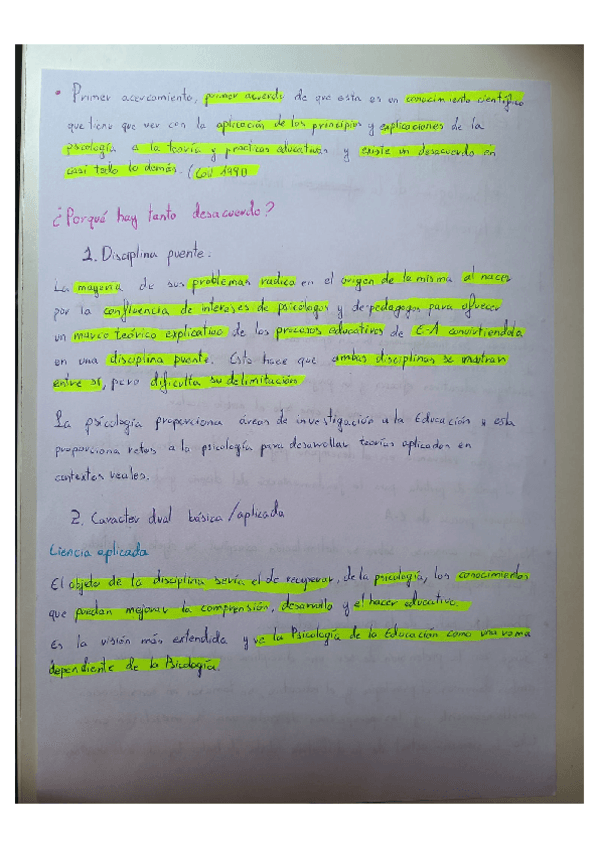 • Primer acercamiento, primer acuerdo de que esta es un conocimiento científico
que tiene que ver con la aplicación de los principios y explicaciones de la
psicología a la teoría y practicas educativas y existe un desacuerdo en
casi todo lo demás. (Coll 1990)
¿Porqué hay tanto desacuerdo?
1. Disciplina puente.
La mayoria de sus problemas radica en el origen de la misma al nacer
por la confluencia de intereses de psicólogos y de pedagogos para ofrecer
un marco teórico explicativo de los procesos educativos de E-A convirtiendola
en una disciplina puente. Esto hace que ambas disciplinas se nutran
entre sí, pero dificulta su delimitación
La psicología proporciona áreas de investigación a la Educación y esta
proporciona retos a la psicología para desarrollar teorías aplicadas en
contextos reales.
2. Caracter dual básica/aplicada
Ciencia aplicada
El objeto de la disciplina sería el de recuperar, de la psicología, los conocimientos
que puedan mejorar la comprensión, desarrollo y el hacer educativo.
Es la visión más extendida y ve la Psicología de la Educación como una rama
dependiente de la Psicología.